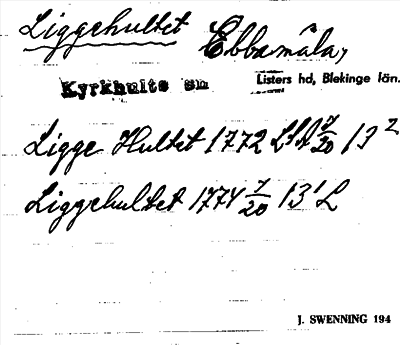 Liggehultet Ebbamåla,
Kyrkhults sn Listers hd, Blekinge län.
Ligge Hultet 1772 LfA 7/20 13²
Liggehultet 1774 7/20 13' L
J. SWENNING 194